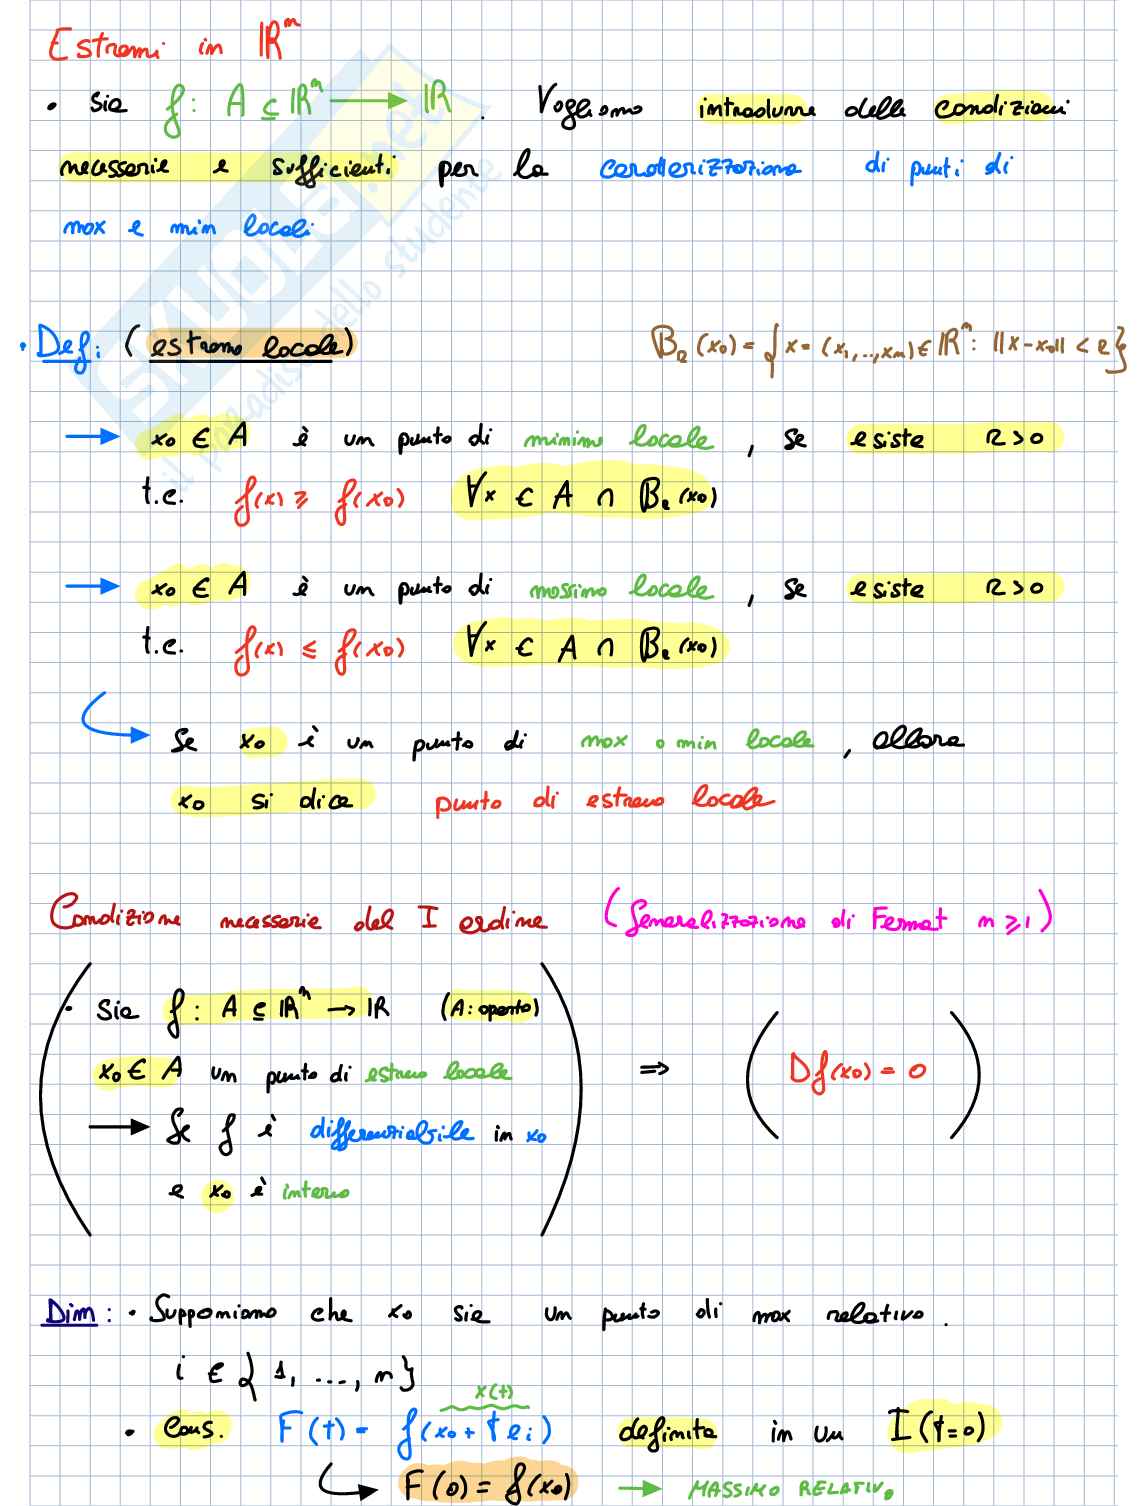 Estremi in ℝⁿ
• Sia f: A ⊆ ℝⁿ → ℝ. Vogliamo introdurre delle condizioni
necessarie e sufficienti per la caratterizzazione di punti di
max e min locali
• Def: (estremo locale) B_R(x₀) = {x = (x₁,..,xₙ) ∈ ℝⁿ: ||x-x₀|| < R}
→ x₀ ∈ A è un punto di minimo locale, se esiste R>0
t.c. f(x) ≥ f(x₀) ∀x ∈ A ∩ B_R(x₀)
→ x₀ ∈ A è un punto di massimo locale, se esiste R>0
t.c. f(x) ≤ f(x₀) ∀x ∈ A ∩ B_R(x₀)
→ Se x₀ è un punto di max o min locale, allora
x₀ si dice punto di estremo locale
Condizione necessarie del I ordine (Generalizzazione di Fermat n≥1)
• Sia f: A ⊆ ℝⁿ → ℝ (A: aperto)
x₀ ∈ A un punto di estremo locale ⇒ (Df(x₀) = 0)
→ Se f è differenziabile in x₀
e x₀ è interno
Dim: • Supponiamo che x₀ sia un punto di max relativo.
i ∈ {1, ..., n}
x(t)
• Cons. F(t) = f(x₀ + t eᵢ) definita in un I(t=0)
→ F(0) = f(x₀) → MASSIMO RELATIVO
SKUOLA.net
il paradiso dello studente